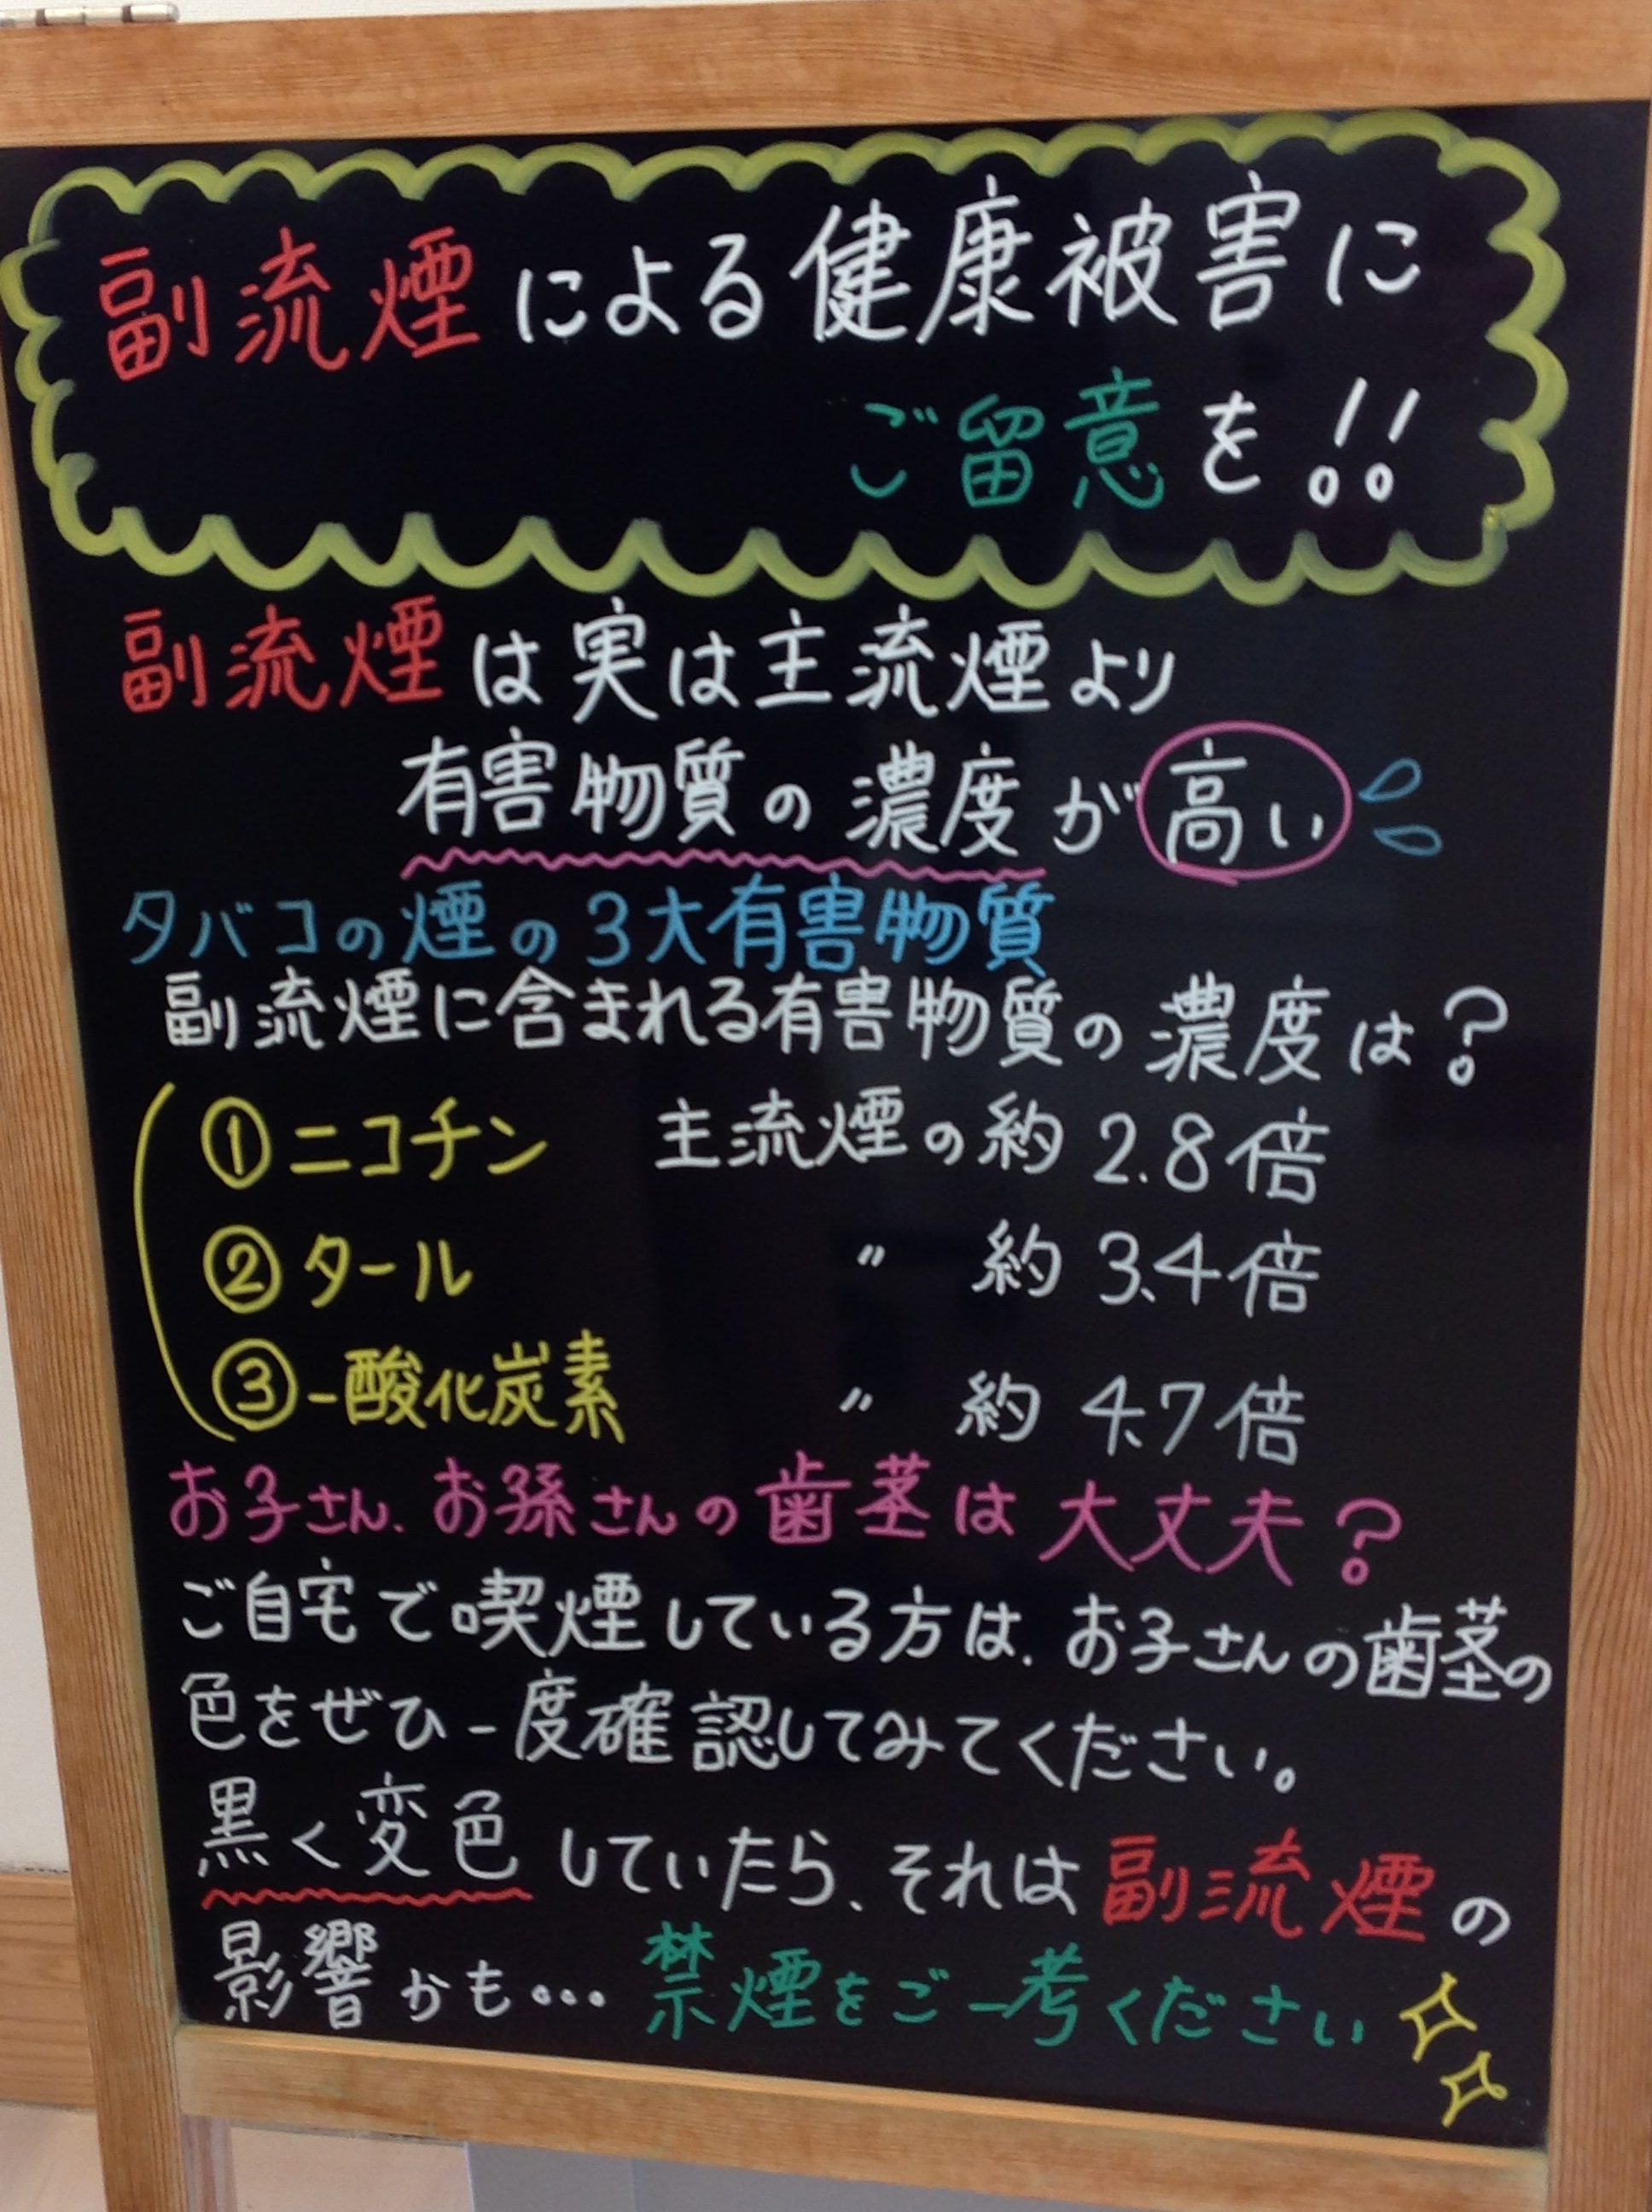 副流煙による健康被害に
ご留意を!!
副流煙は実は主流煙より
有害物質の濃度が高い
タバコの煙の3大有害物質
副流煙に含まれる有害物質の濃度は?
①ニコチン 主流煙の約2.8倍
②タール 〃 約3.4倍
③一酸化炭素 〃 約4.7倍
お子さん、お孫さんの歯茎は大丈夫?
ご自宅で喫煙している方は、お子さんの歯茎の
色をぜひ一度確認してみてください。
黒く変色していたら、それは副流煙の
影響かも…禁煙をご一考ください